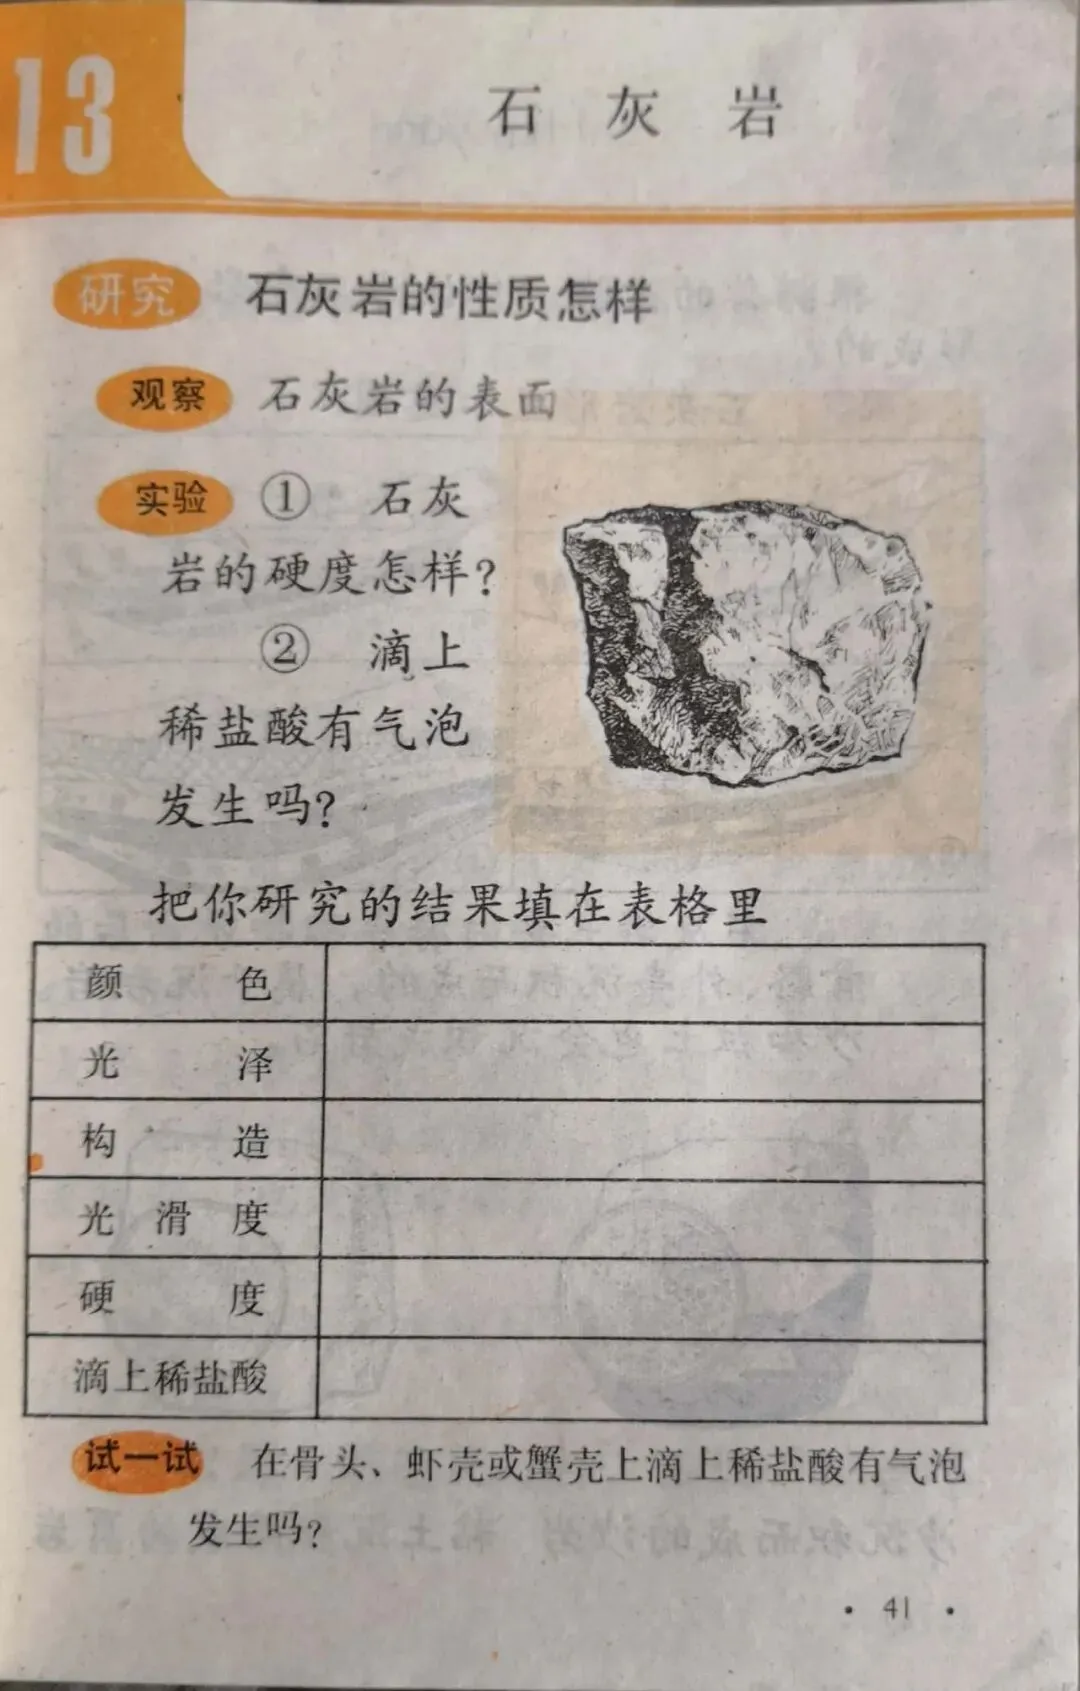 13
石灰岩
研究 石灰岩的性质怎样
观察 石灰岩的表面
实验 ① 石灰
岩的硬度怎样?
② 滴上
稀盐酸有气泡
发生吗?
把你研究的结果填在表格里
颜色
光泽
构造
光滑度
硬度
滴上稀盐酸
试一试 在骨头、虾壳或蟹壳上滴上稀盐酸有气泡
发生吗?
· 41 ·